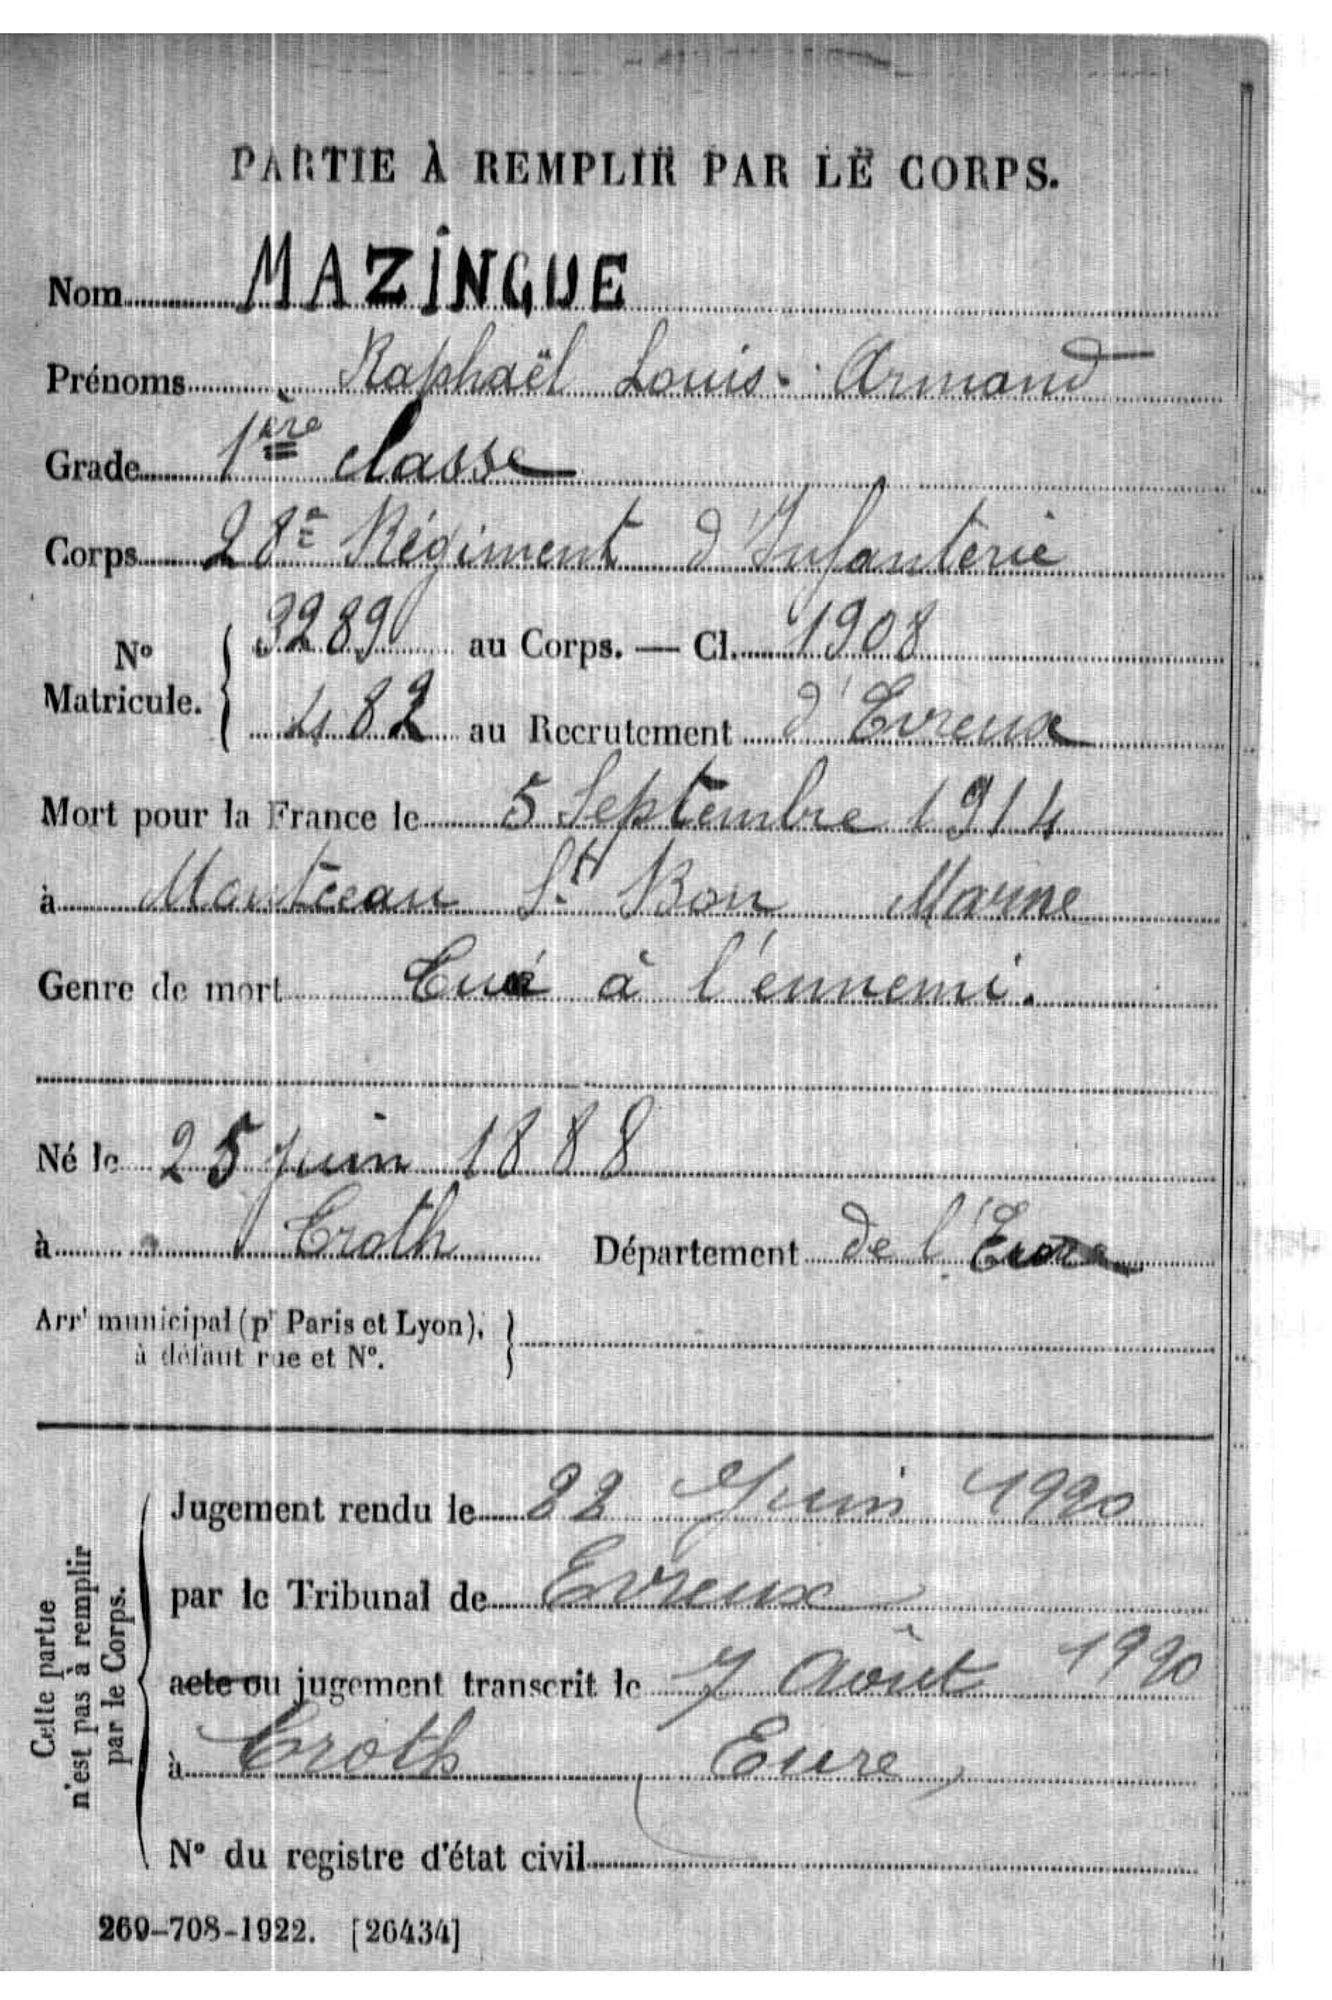 PARTIE À REMPLIR PAR LE CORPS.
Nom MAZINGUE
Prénoms Raphaël Louis-Armand
Grade 1ère classe
Corps 28e Régiment d'Infanterie
No Matricule. { 3289 au Corps. — Cl. 1908
482 au Recrutement d'Evreux
Mort pour la France le 5 Septembre 1914
à Montceau St Bon Marne
Genre de mort Tué à l'ennemi.
Né le 25 juin 1888
à Croth Département de l'Eure
Arrt municipal (pr Paris et Lyon), }
à défaut rue et No.
Cette partie
n'est pas à remplir
par le Corps.
Jugement rendu le 22 Juin 1920
par le Tribunal de Evreux
acte ou jugement transcrit le 7 Août 1920
à Croth Eure
No du registre d'état civil
269-708-1922. [26434]